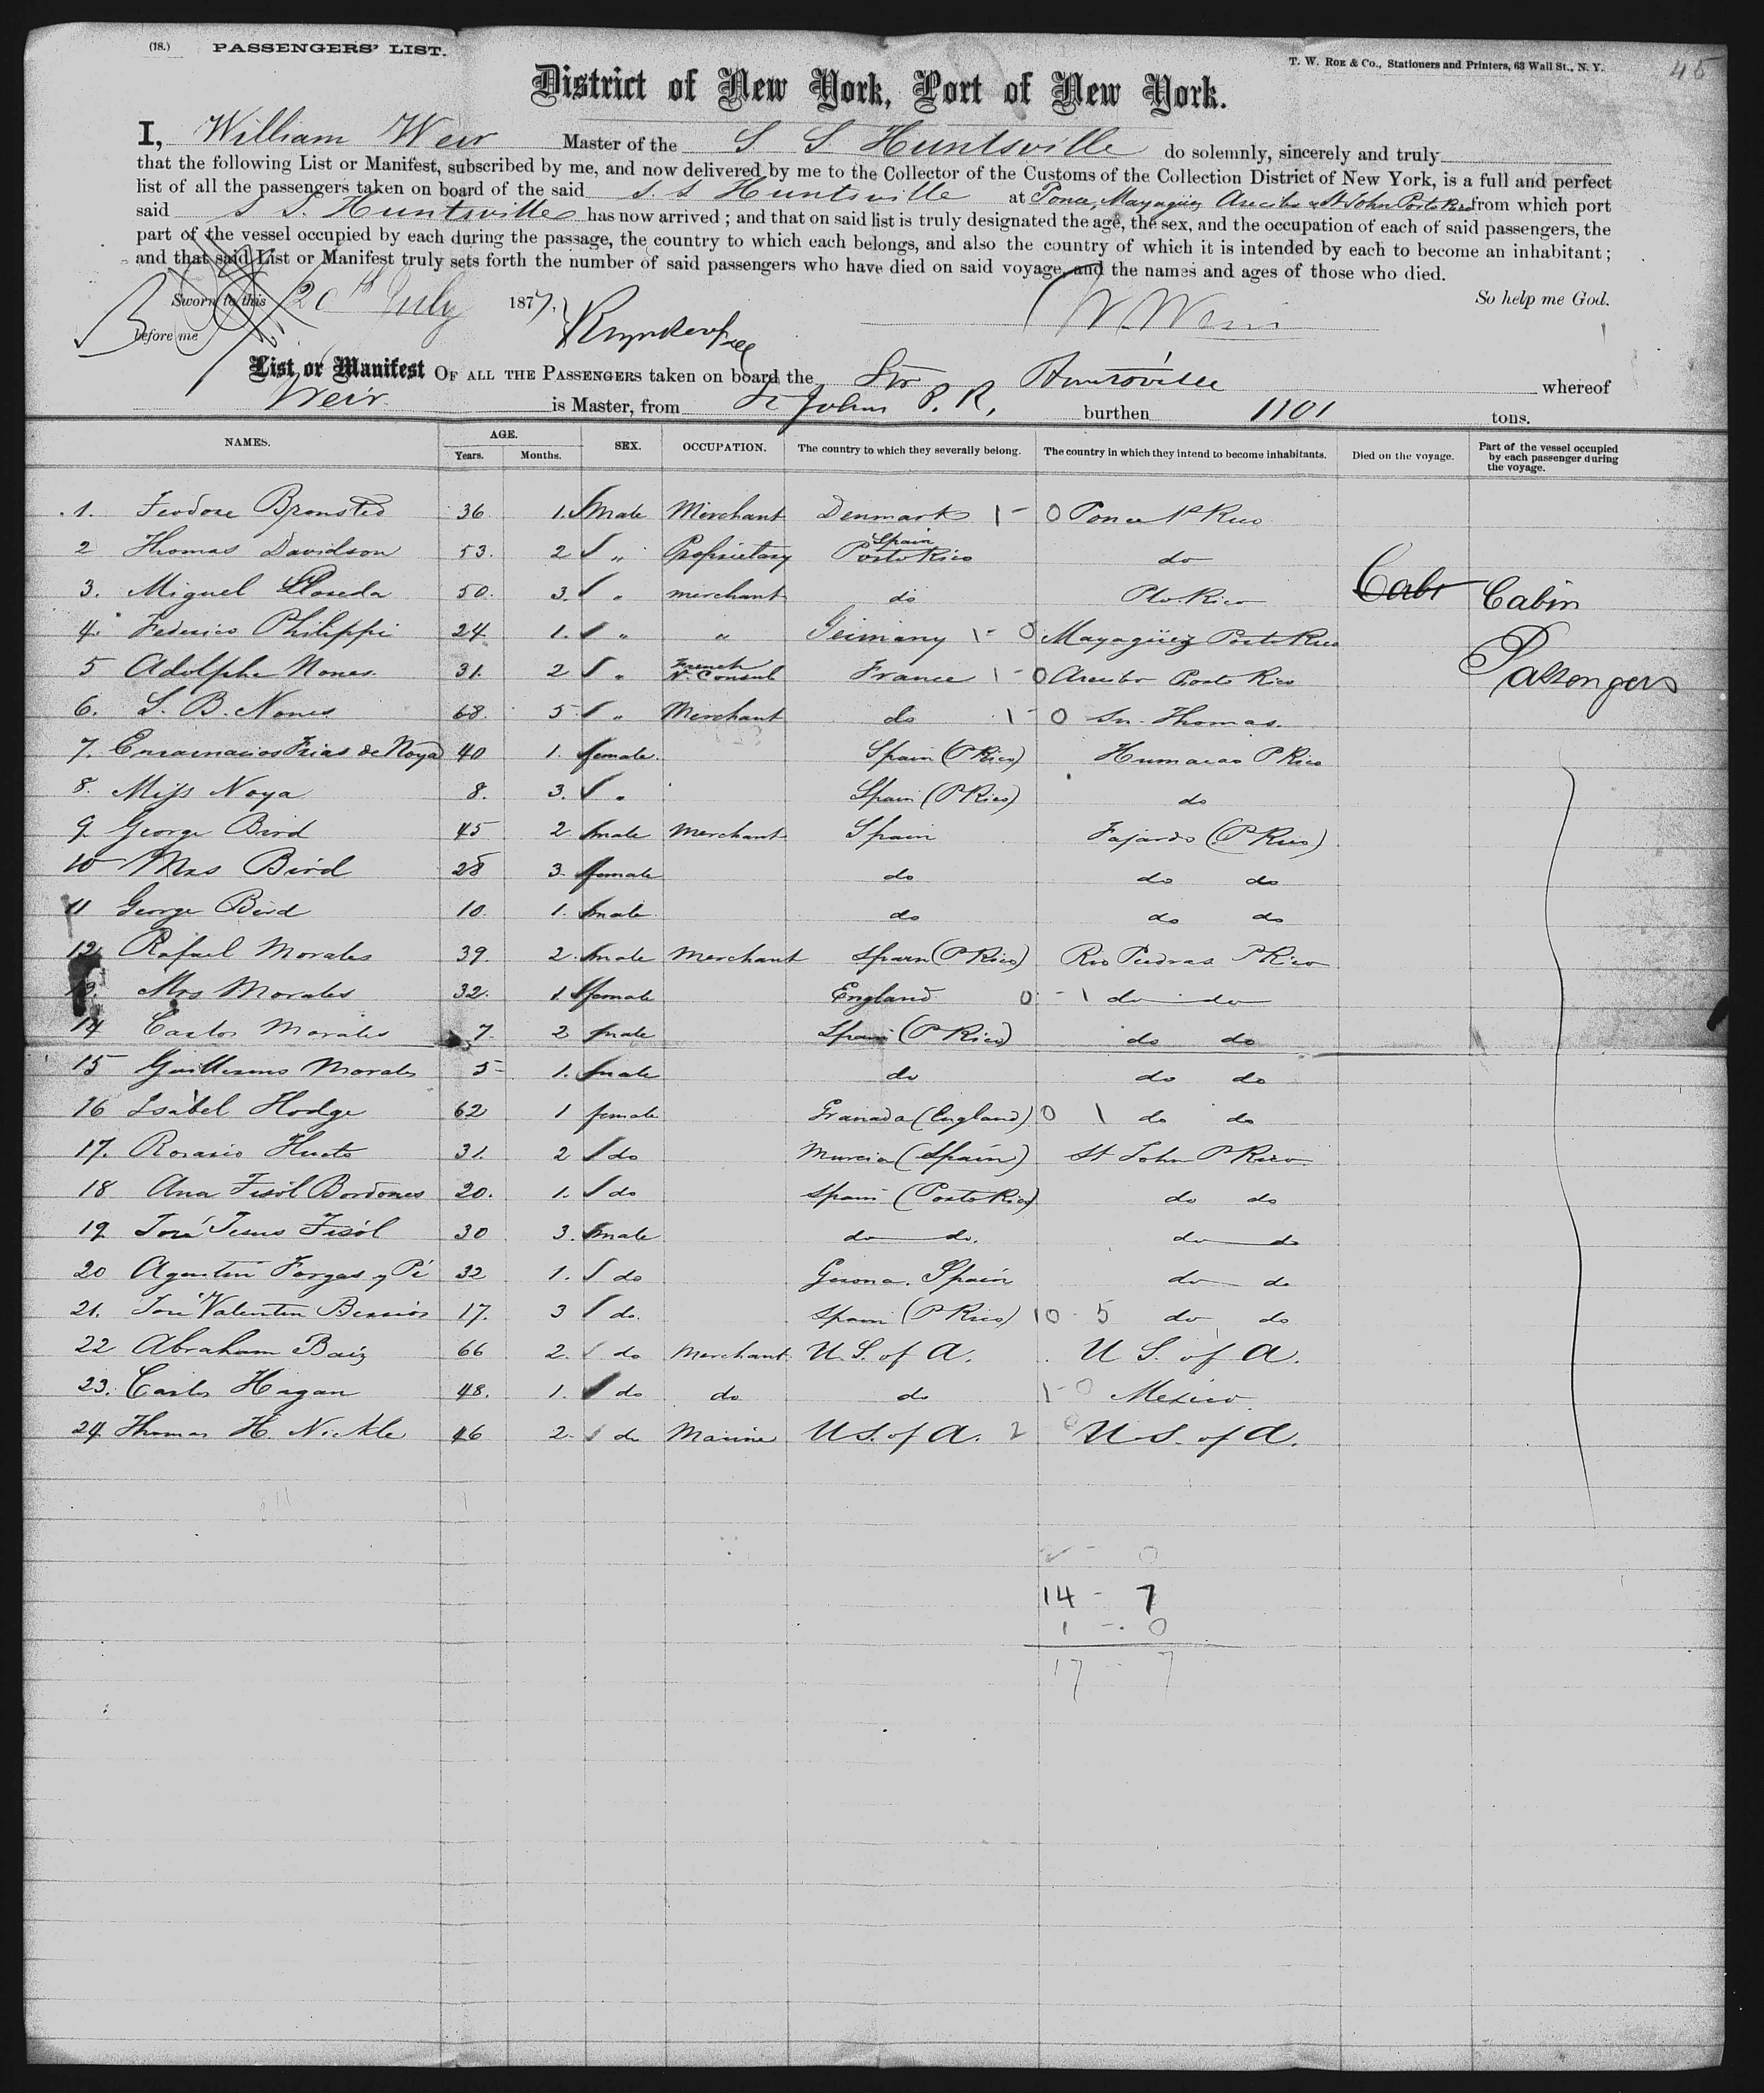 (18.) PASSENGERS' LIST.
T. W. Roe & Co., Stationers and Printers, 63 Wall St., N. Y.
45
District of New York, Port of New York.
I, William Weir Master of the S S Huntsville do solemnly, sincerely and truly
that the following List or Manifest, subscribed by me, and now delivered by me to the Collector of the Customs of the Collection District of New York, is a full and perfect
list of all the passengers taken on board of the said S. S Huntsville at Ponce, Mayaguez Arecibo & St John Porto Rico from which port
said S S. Huntsville has now arrived ; and that on said list is truly designated the age, the sex, and the occupation of each of said passengers, the
part of the vessel occupied by each during the passage, the country to which each belongs, and also the country of which it is intended by each to become an inhabitant ;
and that said List or Manifest truly sets forth the number of said passengers who have died on said voyage, and the names and ages of those who died.
Sworn to this 20th July 1877. So help me God.
before me W. Weir
List or Manifest OF ALL THE PASSENGERS taken on board the Str Huntsville whereof
Weir is Master, from St Johns P. R. burthen 1101 tons.
NAMES. AGE. Years. Months. SEX. OCCUPATION. The country to which they severally belong. The country in which they intend to become inhabitants. Died on the voyage. Part of the vessel occupied by each passenger during the voyage.
1. Feodore Bronsted 36 1. male Merchant Denmark 1 - 0 Ponce P Rico
2 Thomas Davidson 53. 2 " Proprietary Spain Porto Rico do
3. Miguel Lloseda 50. 3. " merchant do Pto Rico Cabr Cabin
4. Federico Philippi 24 1. " " Germany 1 - 0 Mayagüez Porto Rico
5 Adolphe Nones. 31. 2 " French V. Consul France 1 - 0 Arecibo Porto Rico Passengers
6. S. B. Nones 68. 5 " Merchant do 1 - 0 Sn. Thomas.
7. Encarnacion Frias de Noya 40 1. female. Spain (P Rico) Humacao P Rico
8. Miss Noya 8. 3. " Spain (P Rico) do
9. George Bird 45 2. male Merchant Spain Fajardo (P. Rico)
10 Mrs Bird 28 3. female do do do
11 George Bird 10. 1. male do do do
12 Rafael Morales 39. 2. male Merchant Spain (P Rico) Rio Piedras P Rico
13. Mrs Morales 32. 1. female England 0 - 1 do do
14 Carlos Morales 7. 2 male Spain (P Rico) do do
15 Guillermo Morales 5 1. male do do do
16 Isabel Hodge 62 1 female Granada (England) 0 1 do do
17. Rosario Hueto 31. 2 do Murcia (Spain) St John P Rico
18 Ana Fisòl Bordones 20. 1. do Spain (Porto Rico) do do
19. José Jesus Fisòl 30 3. male do do. do do
20 Agustin Fargas y Pi 32 1. do Gerona. Spain do do
21. José Valentin 17. 3 do. Spain (P Rico) 10 - 5 do do
22 Abraham Baiz 66 2. do Merchant. U. S. of A. U S. of A.
23. Carlos Hagan 48. 1. do do do 1 - 0 Mexico.
24 Thomas H. Nickle 46 2. do Marine U S. of A. 2 0 U. S. of A.
2 - 0
14 - 7
1 - 0
17 - 7